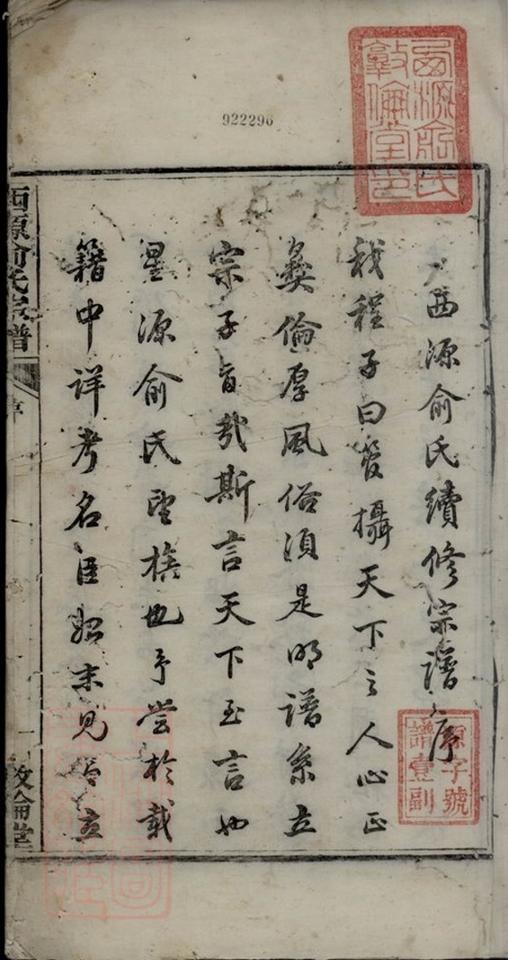 922296
西源俞氏敦倫堂印
西源俞氏續修宗譜序
我程子曰管攝天下之人心正
彜倫厚風俗須是明譜系立
宗子旨哉斯言天下至言也
星源俞氏望族也予嘗於載
籍中詳考名臣始末見
源字號
譜壹副
西源俞氏宗譜
序
一
敦倫堂